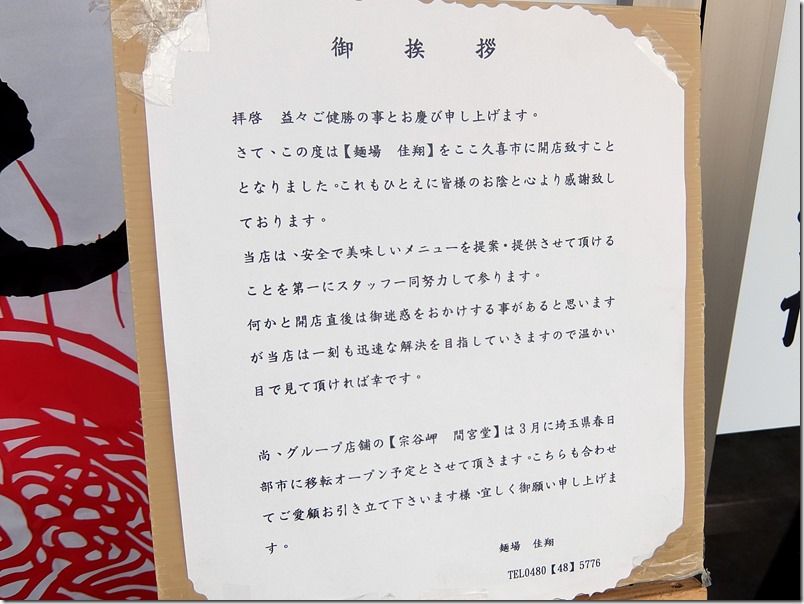 御挨拶
拝啓　益々ご健勝の事とお慶び申し上げます。
さて、この度は【麺場　佳翔】をここ久喜市に開店致すこと
となりました。これもひとえに皆様のお陰と心より感謝致し
ております。
当店は、安全で美味しいメニューを提案・提供させて頂ける
ことを第一にスタッフ一同努力して参ります。
何かと開店直後は御迷惑をおかけする事があると思います
が当店は一刻も迅速な解決を目指していきますので温かい
目で見て頂ければ幸です。
尚、グループ店舗の【宗谷岬　間宮堂】は3月に埼玉県春日
部市に移転オープン予定とさせて頂きます。こちらも合わせ
てご愛顧お引き立て下さいます様、宜しく御願い申し上げま
す。
麺場　佳翔
TEL0480【48】5776